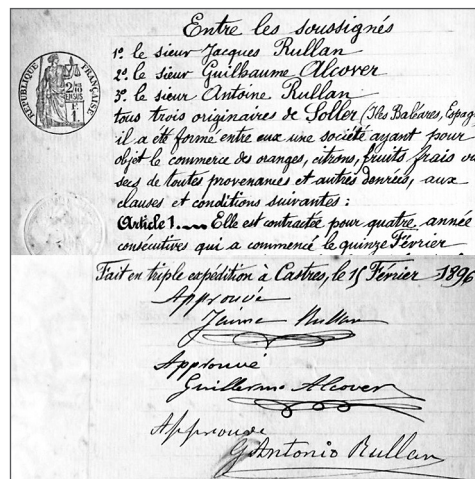 Entre les soussignés
1º. le sieur Jacques Rullan
2º. le sieur Guilhaume Alcover
3º. le sieur Antoine Rullan
tous trois originaires de Soller (Iles Baléares, Espag
il a été formé entre eux une société ayant pour
objet le commerce des oranges, citrons, fruits frais ou
secs de toutes provenances et autres denrées, aux
clauses et conditions suivantes :
Article 1. Elle est contractée pour quatre année
consécutives qui a commencé le quinze Février
RÉPUBLIQUE FRANÇAISE
Fait en triple expédition à Castres, le 15 Février 1896
Approuvé
Jaime Rullan
Approuvé
Guillermo Alcover
Approuvé
Antonio Rullan